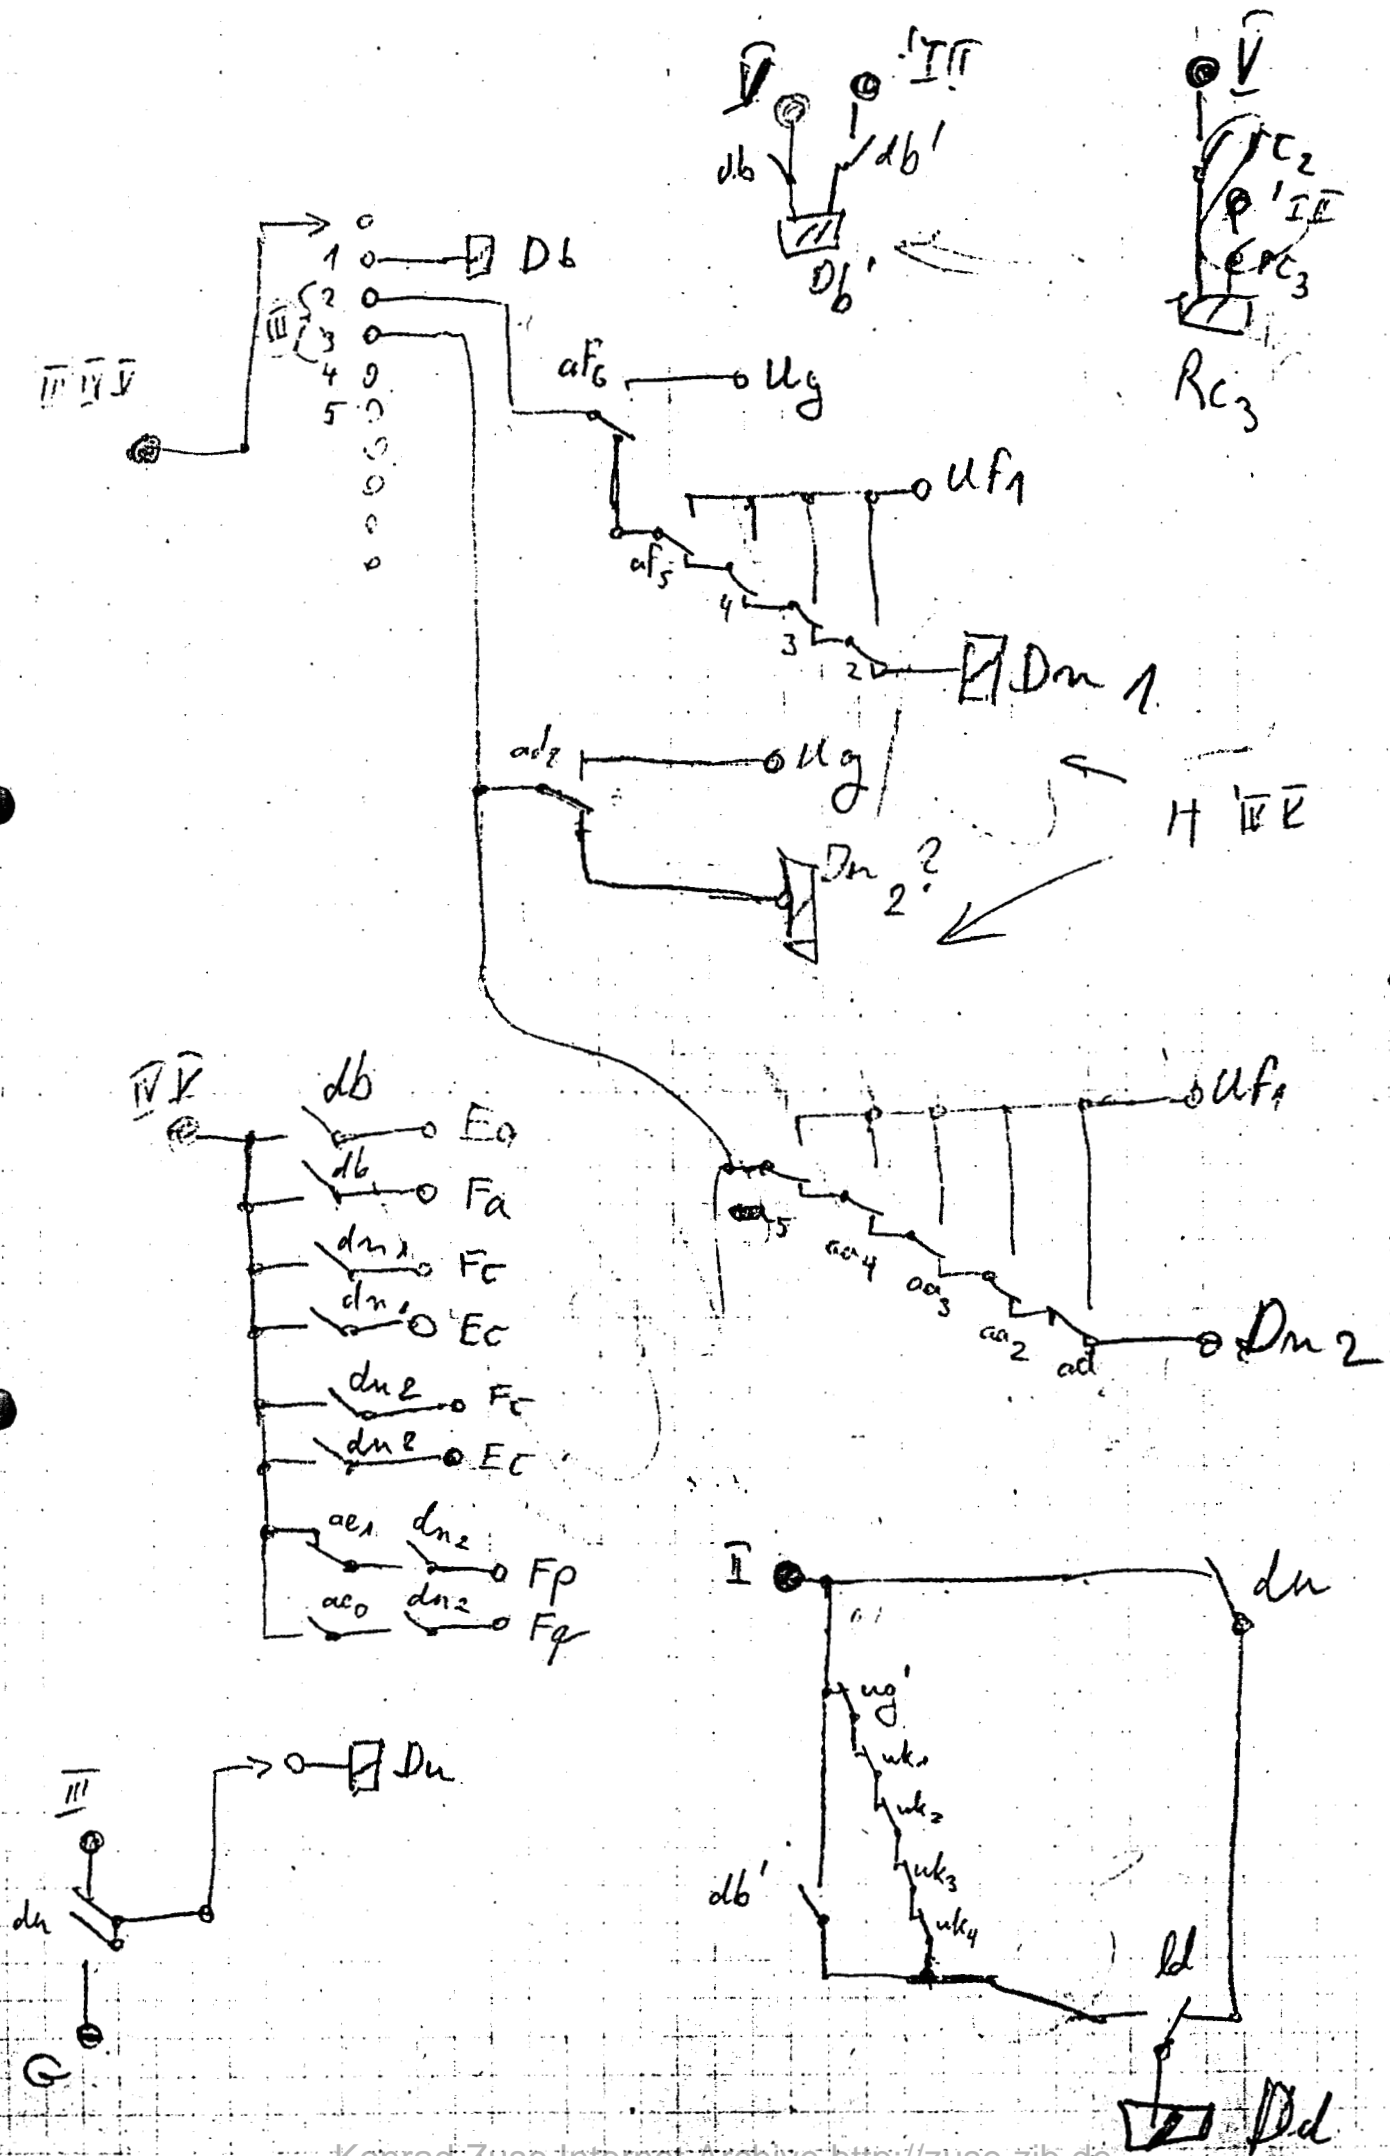 V
'III
db
db'
Db'
V
rc2
'III
rc3
Rc3
1
Db
2
III
3
4
5
III IV V
af6
Ug
Uf1
af5
4
3
2
Dn 1
ad2
Ug
Dn 2 ?
H
IV V
db
Ea
db
Fa
dn1
Fc
dn1
Ec
dn2
Fc
dn2
Ec
ae1
dn2
Fp
ae0
dn2
Fq
Uf1
5
aa4
aa3
aa2
ad
Dn 2
II
du
ug'
uk1
uk2
uk3
uk4
db'
ld
Dd
III
Du
du
G
Konrad Zuse Internet Archive http://zuse.zib.de